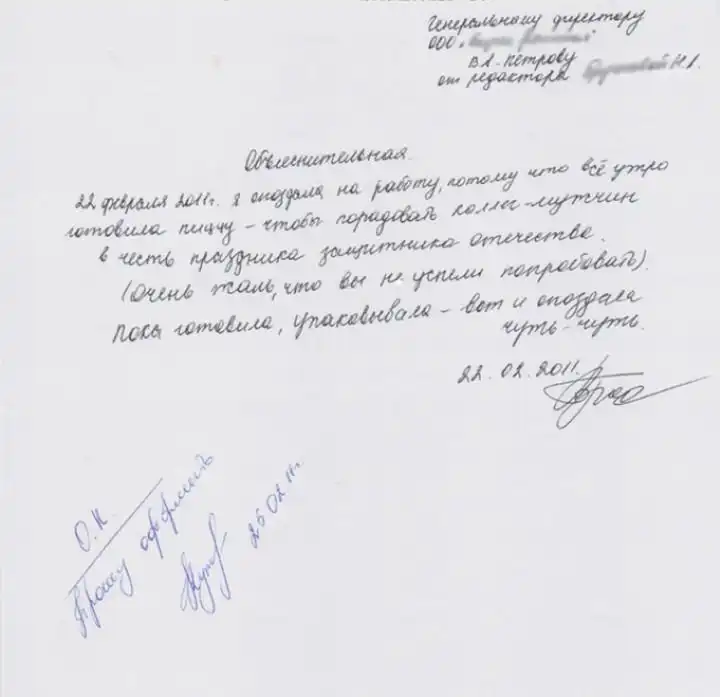 Генеральному директору
ООО
В.А. Петрову
от редактора Н.А.
Объяснительная.
22 февраля 2011г. я опоздала на работу, потому что всё утро
готовила пиццу – чтобы порадовать коллег-мужчин
в честь праздника защитника отечества.
(очень жаль, что вы не успели попробовать).
Пока готовила, упаковывала – вот и опоздала
чуть-чуть.
22.02.2011.
О.К.
Прошу оформить
25 02 11г.